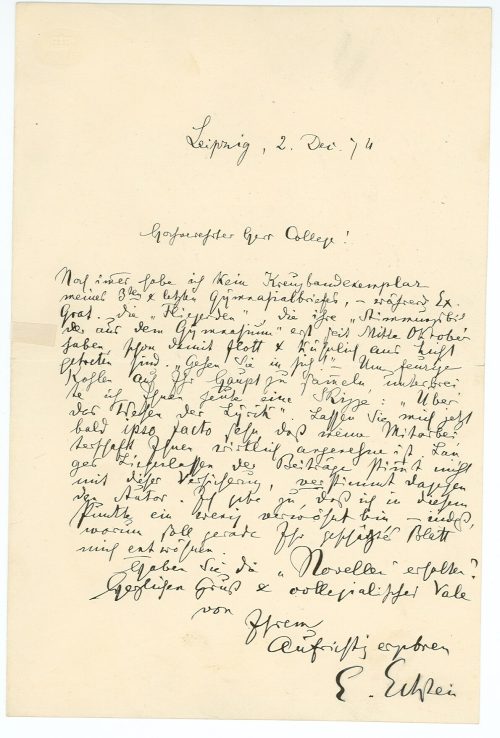 Leipzig, 2. Dec. 74
Hochverehrter Herr College!
Noch immer habe ich kein Kreuzbandexemplar
meines 3ten & letzten Gymnasialbriefes, – während Ex.
Grat. die „Fliegenden" die ihre „Stimmungsbil
der aus dem Gymnasium" erst seit Mitte Oktober
haben, schon damit flott & aus Licht
getreten sind. „Gehen Sie in sich!" Um feurige
Kohlen auf Ihr Haupt zu sammeln, unterbrei
te ich Ihnen heute eine Skizze: „Über
das Wesen der Lyrik". Lassen Sie mich jetzt
bald ipso facto sehn, daß meine Mitarbei
terschaft Ihnen wirklich angenehm ist. Lan
ges Liegenlassen der Beiträge stimmt nicht
mit dieser Versicherung, verstimmt dagegen
den Autor. Ich gebe zu, daß ich in diesem
Punkte ein wenig verwöhnt bin – indeß,
warum soll gerade Ihr geschätztes Blatt
mich entwöhnen.
Haben Sie die „Novellen" erhalten?
Herzlichen Gruß & collegialischer Vale
von
Ihrem
Aufrichtig ergebnen
E. Eckstein